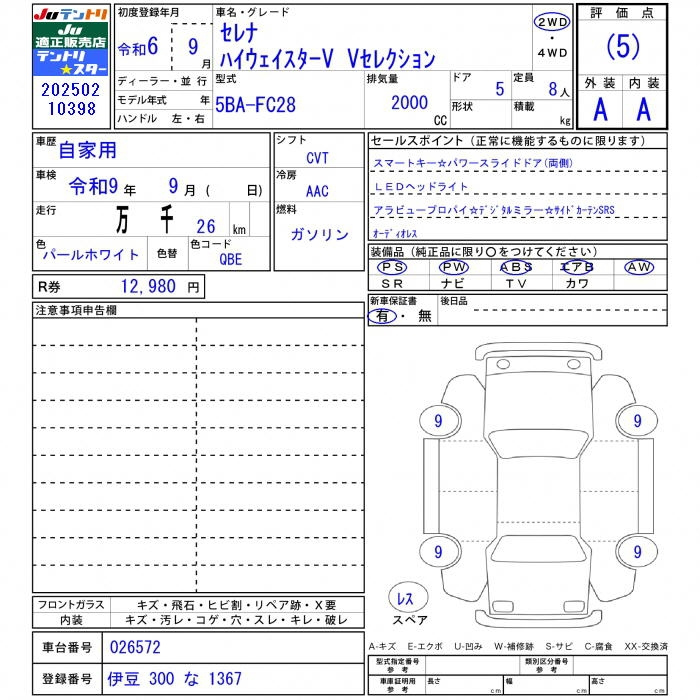 Juテントリ
Ju
適正販売店
テントリ
★スター
202502
10398
初度登録年月
令和6 9月
車名・グレード
セレナ
ハイウェイスターV Vセレクション
2WD
・
4WD
評価点
(5)
外装 内装
A A
ディーラー・並行
モデル年式 年
ハンドル 左・右
型式
5BA-FC28
排気量
2000
CC
ドア
5
形状
定員
8人
積載
kg
車歴
自家用
車検
令和9年 9月( 日)
走行
万 千 26 km
色
パールホワイト
色替
色コード
QBE
シフト
CVT
冷房
AAC
燃料
ガソリン
セールスポイント(正常に機能するものに限ります)
スマートキー☆パワースライドドア(両側)
LEDヘッドライト
アラビュープロパイ☆デジタルミラー☆サイドカーテンSRS
オーディオレス
装備品(純正品に限り〇をつけてください)
PS PW ABS エアB AW
SR ナビ TV カワ
R券 12,980 円
新車保証書
有・無
後日品
注意事項申告欄
9 9
9 9
レス
スペア
フロントガラス キズ・飛石・ヒビ割・リペア跡・X要
内装 キズ・汚レ・コゲ・穴・スレ・キレ・破レ
車台番号 026572
登録番号 伊豆 300 な 1367
A-キズ E-エクボ U-凹み W-補修跡 S-サビ C-腐食 XX-交換済
型式指定番号
参考
類別区分番号
参考
車庫証明用
参考
長さ cm
幅 cm
高さ cm